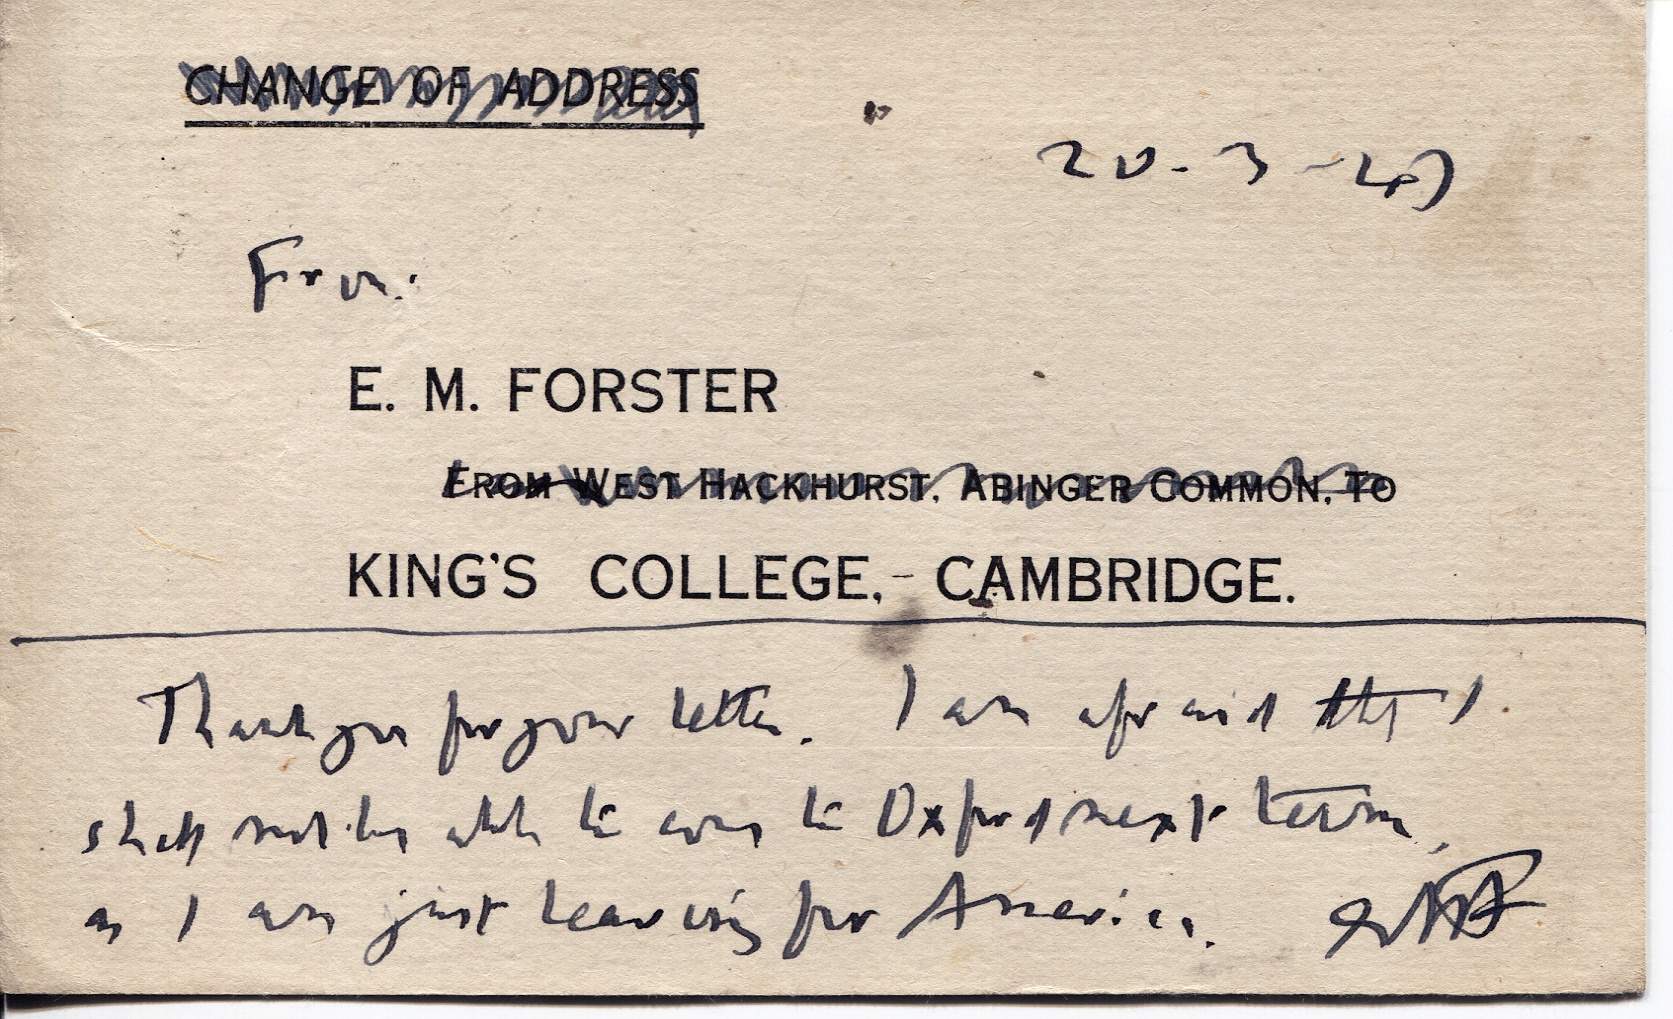 CHANGE OF ADDRESS
20-3-47
From:
E. M. FORSTER
FROM WEST HACKHURST, ABINGER COMMON, TO
KING'S COLLEGE, CAMBRIDGE.
Thank you for your letter. I am afraid that I
shall not be able to come to Oxford next term,
as I am just leaving for America. EMF